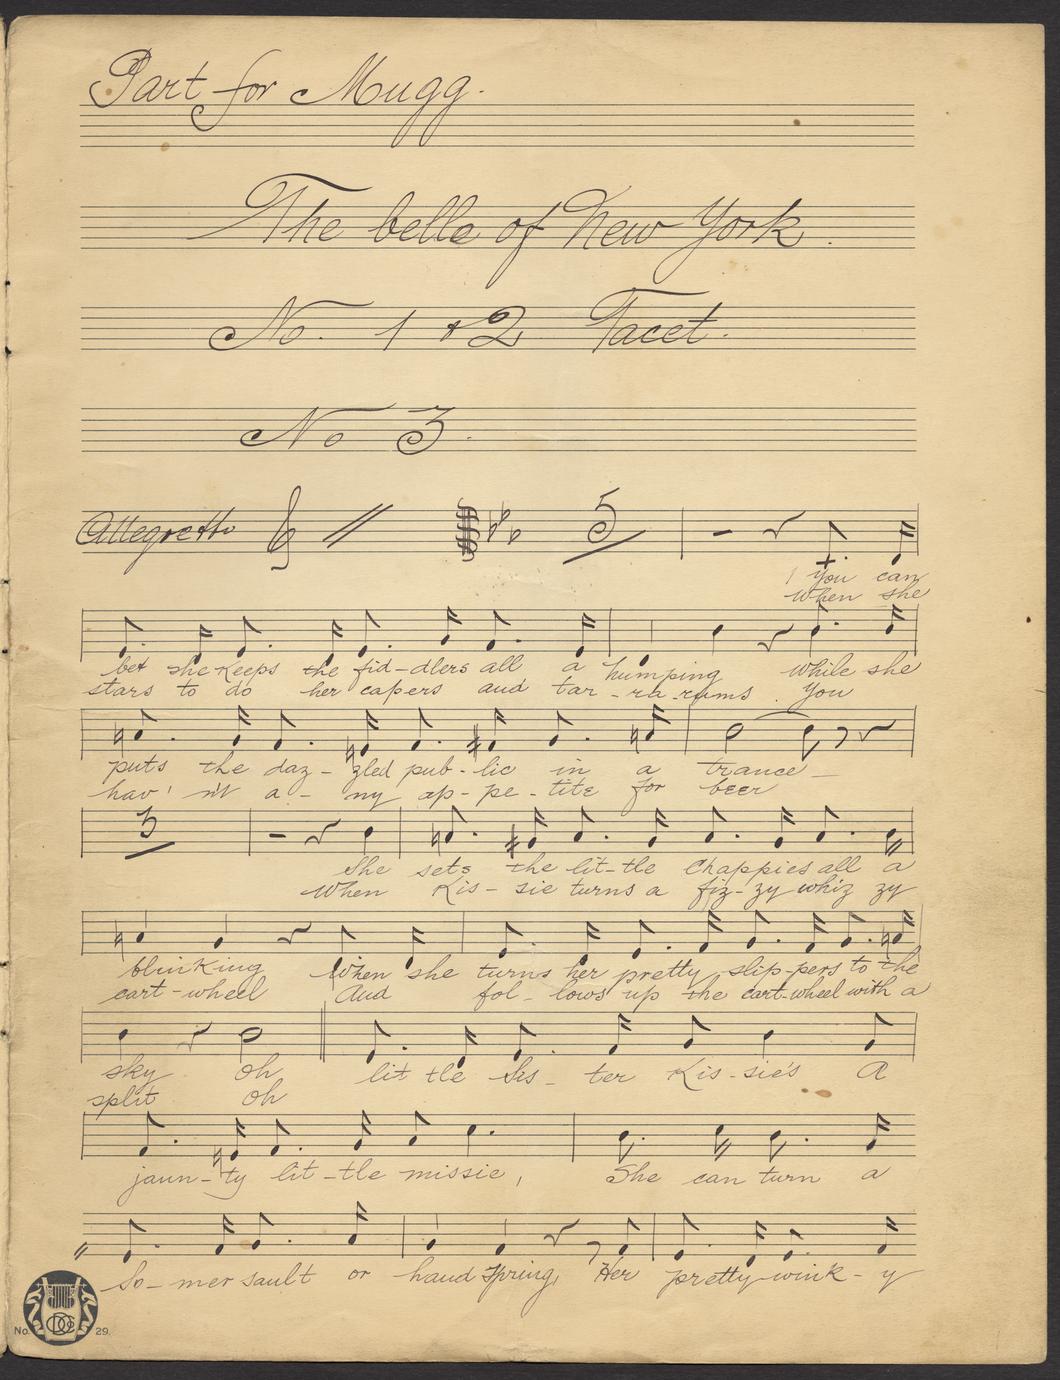 Part for Mugg.
The belle of New York.
No. 1 & 2 Tacet.
No 3.
Allegretto 5
1 You can
When she
bet she keeps the fid-dlers all a humping while she
stars to do her capers and tar-ra-rums. You
puts the daz-zled pub-lic in a trance
hav'n't a-ny ap-pe-tite for beer
3
She sets the lit-tle Chappies all a
When Kis-sie turns a fiz-zy whiz zy
blinking When she turns her pretty slip-pers to the
cart-wheel And fol-lows up the cart-wheel with a
sky oh lit tle Sis-ter Kis-sie's A
split oh
jaun-ty lit-tle missie, She can turn a
So-mer sault or hand Spring, Her pretty wink-y
No. 29.